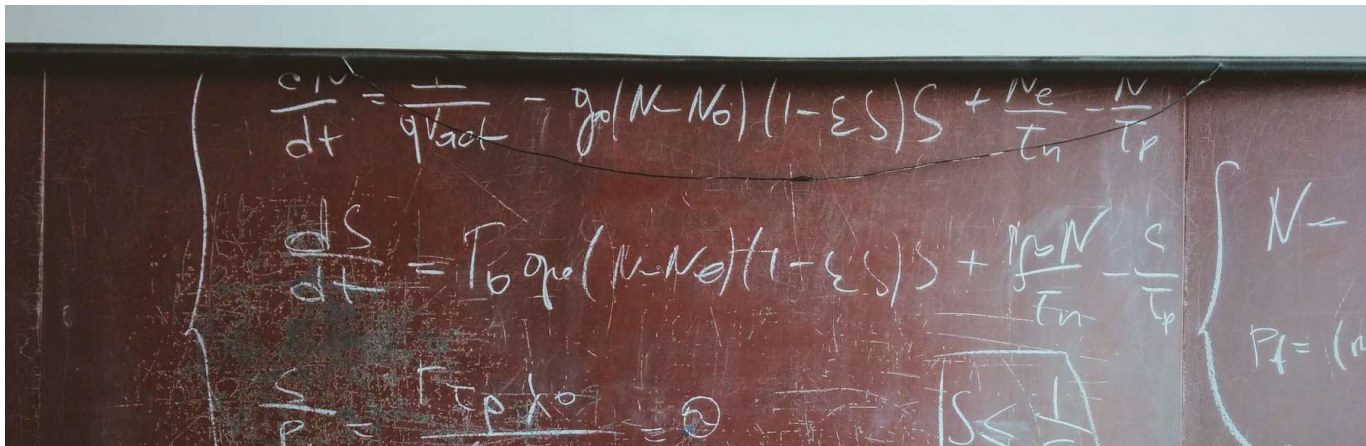 dN/dt = I/qVact - g0(N-N0)(1-εS)S + Ne/τn - N/τp
dS/dt = Γ0 g0(N-N0)(1-εS)S + N/τn - S/τp
S/P = Γτpλ0 = ②
S ≤ 1
N =
Pf = (